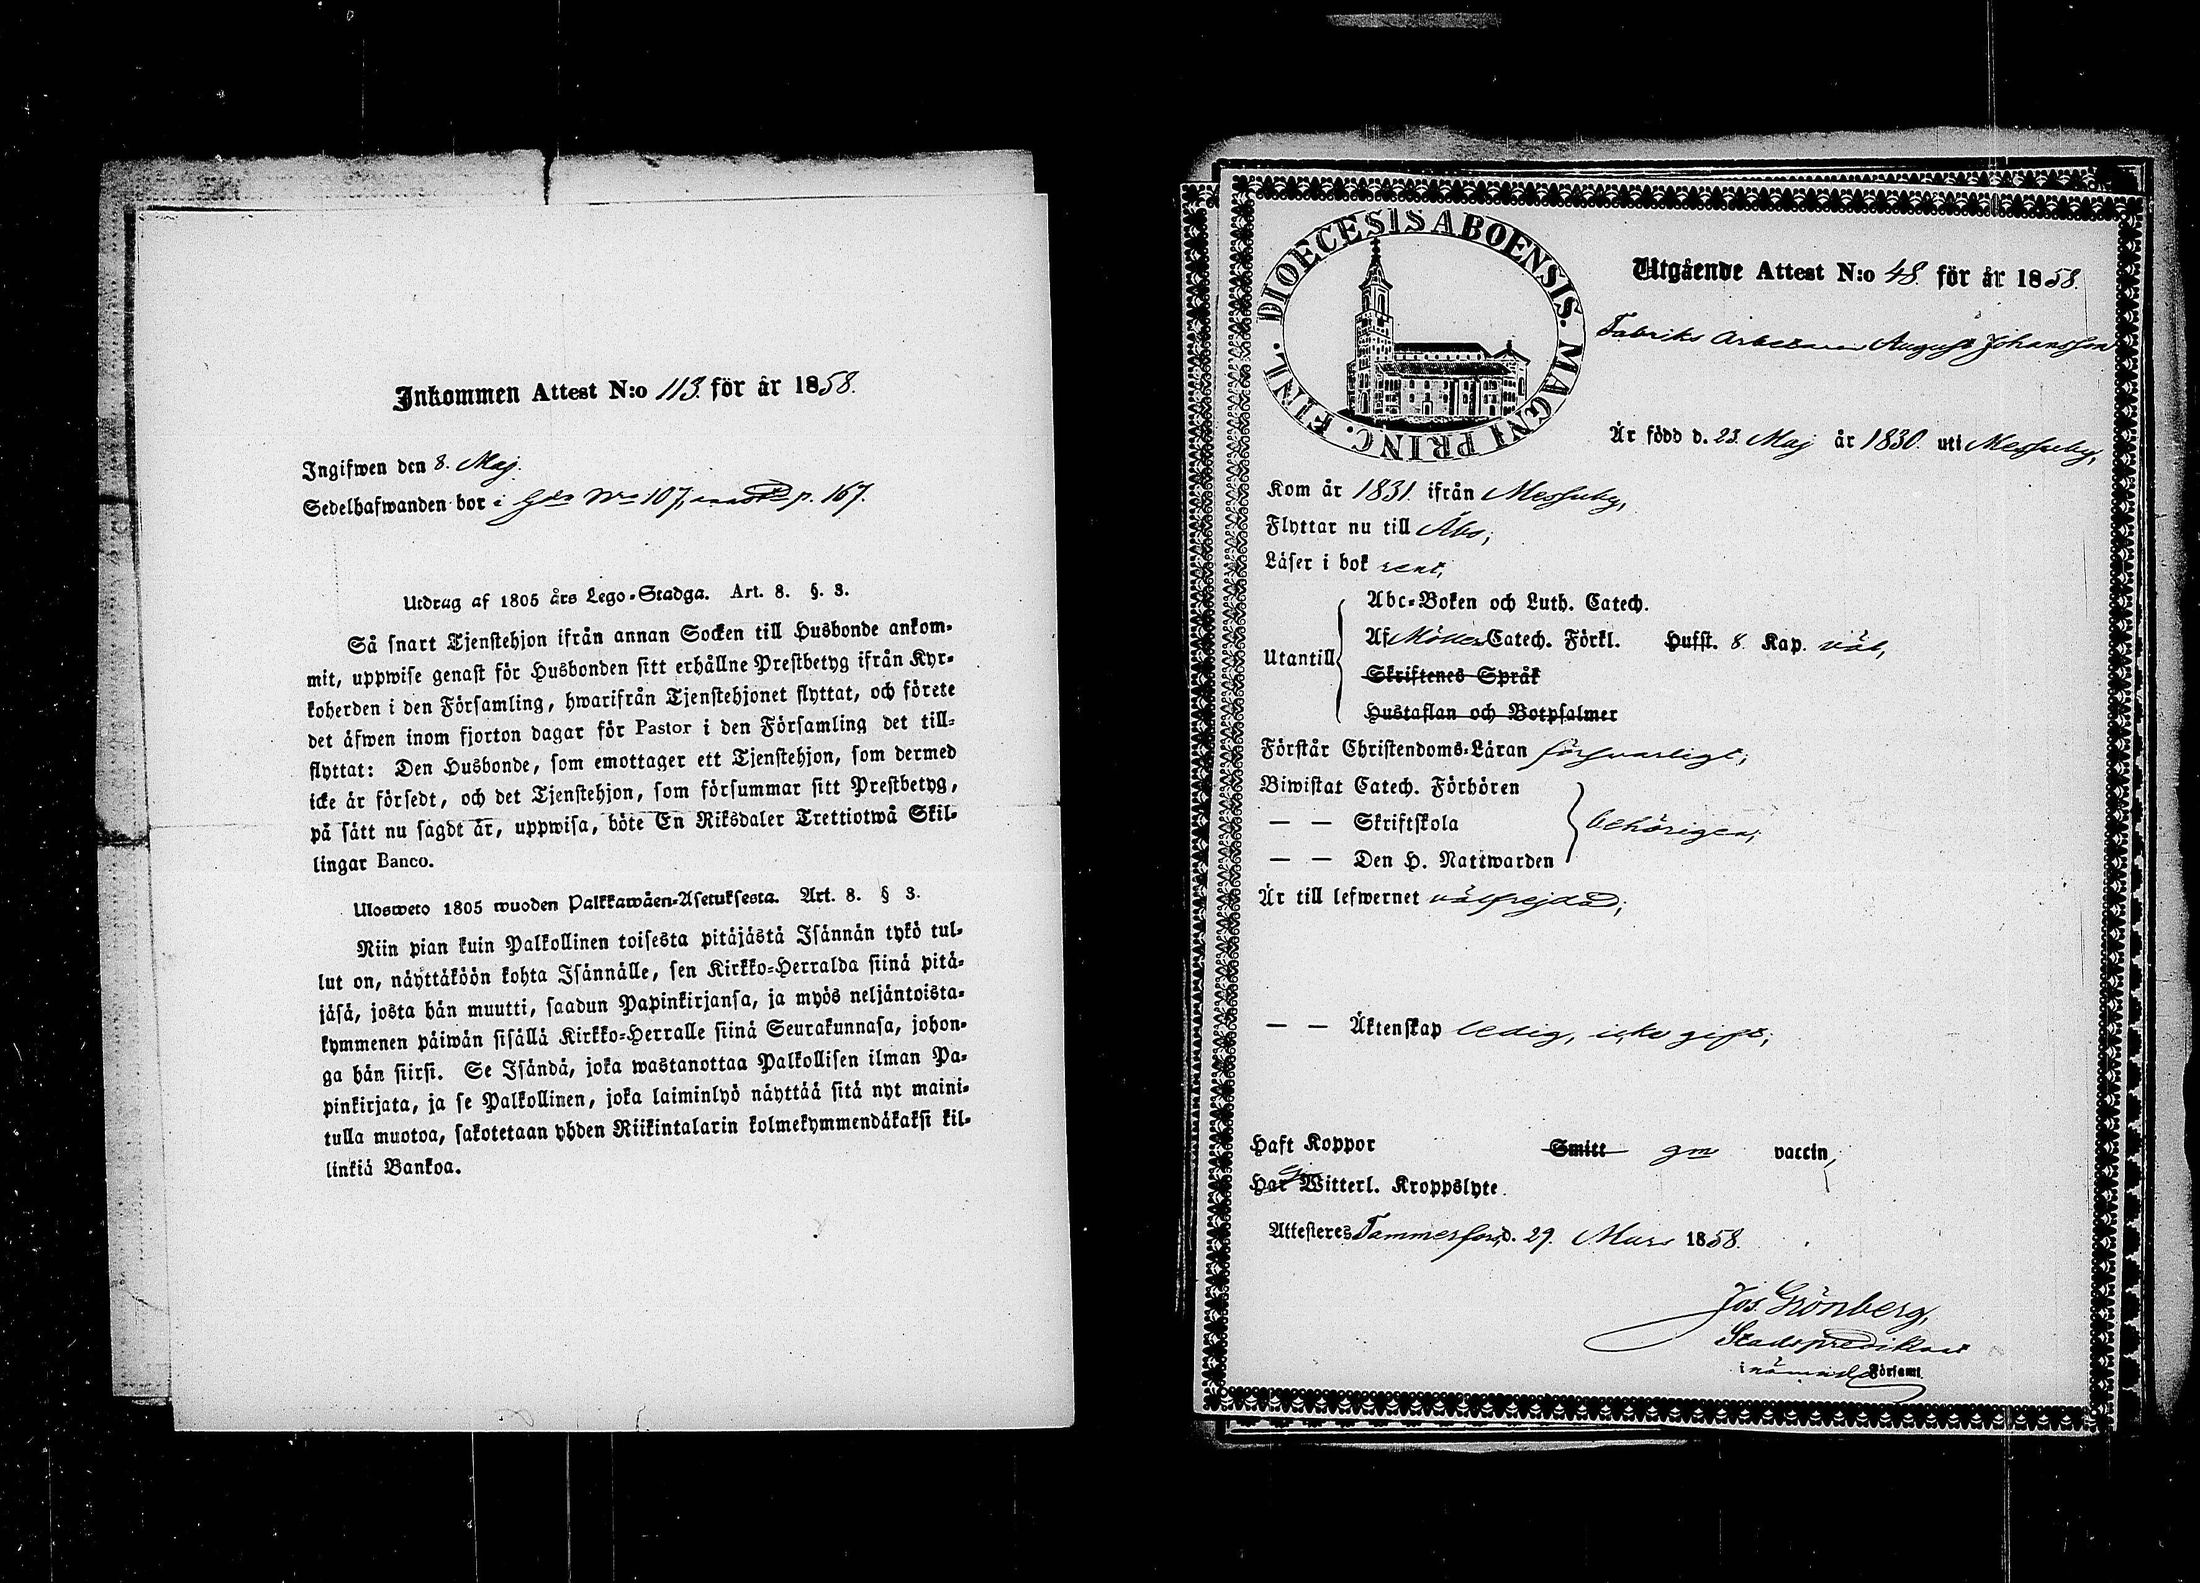 Inkommen Attest N:o 113. för år 1858.
Ingifwen den 8. Maj.
Sedelhafwanden bor i Gdn No 107, p. 167.
Utdrag af 1805 års Lego-Stadga. Art. 8. §. 3.
Så snart Tjenstehjon ifrån annan Socken till Husbonde ankom-
mit, uppwise genast för Husbonden sitt erhållne Prestbetyg ifrån Kyr-
koherden i den Församling, hwarifrån Tjenstehjonet flyttat, och förete
det äfwen inom fjorton dagar för Pastor i den Församling det till-
flyttat: Den Husbonde, som emottager ett Tjenstehjon, som dermed
icke är försedt, och det Tjenstehjon, som försummar sitt Prestbetyg,
på sätt nu sagdt är, uppwisa, böte En Riksdaler Trettiotwå Skil-
lingar Banco.
Ulosweto 1805 wuoden Palkkawäen-Asetuksesta. Art. 8. § 3.
Niin pian kuin Palkollinen toisesta pitäjästä Isännän tykö tul-
lut on, näyttäköön kohta Isännälle, sen Kirkko-Herralda siinä pitä-
jäsä, josta hän muutti, saadun Papinkirjansa, ja myös neljäntoista-
kymmenen päiwän sisällä Kirkko-Herralle siinä Seurakunnasa, johon-
ga hän siirsi. Se Isändä, joka wastanottaa Palkollisen ilman Pa-
pinkirjata, ja se Palkollinen, joka laiminlyö näyttää sitä nyt maini-
tulla muotoa, sakotetaan yhden Riikintalarin kolmekymmendäkaksi kil-
linkiä Bankoa.
DIOECESIS ABOENSIS. MAGNI PRINC. FINL.
Utgående Attest N:o 48. för år 1858.
Fabriks Arbetaren August Johansson
Är född d. 23. Maj år 1830. uti Messuby,
Kom år 1831. ifrån Messuby,
Flyttar nu till Åbo,
Läser i bok rent,
Utantill
Abc-Boken och Luth. Catech.
Af Möllers Catech. Förkl. Hufst. 8 Kap. väl,
Skriftenes Språk
Hustaflan och Botpsalmer
Förstår Christendoms-Läran försvarligt,
Biwistat Catech. Förhören
— — Skriftskola behörigen,
— — Den H. Nattwarden
Är till lefwernet välfrejdad,
— — Äktenskap ledig, icke gift,
Haft Koppor Smitt gm vaccin,
Har Witterl. Kroppslyte.
Attesteres Tammerfors, d. 29. Mars 1858.
Jos. Grönberg,
Stadspredikant
i nämnde Församl.